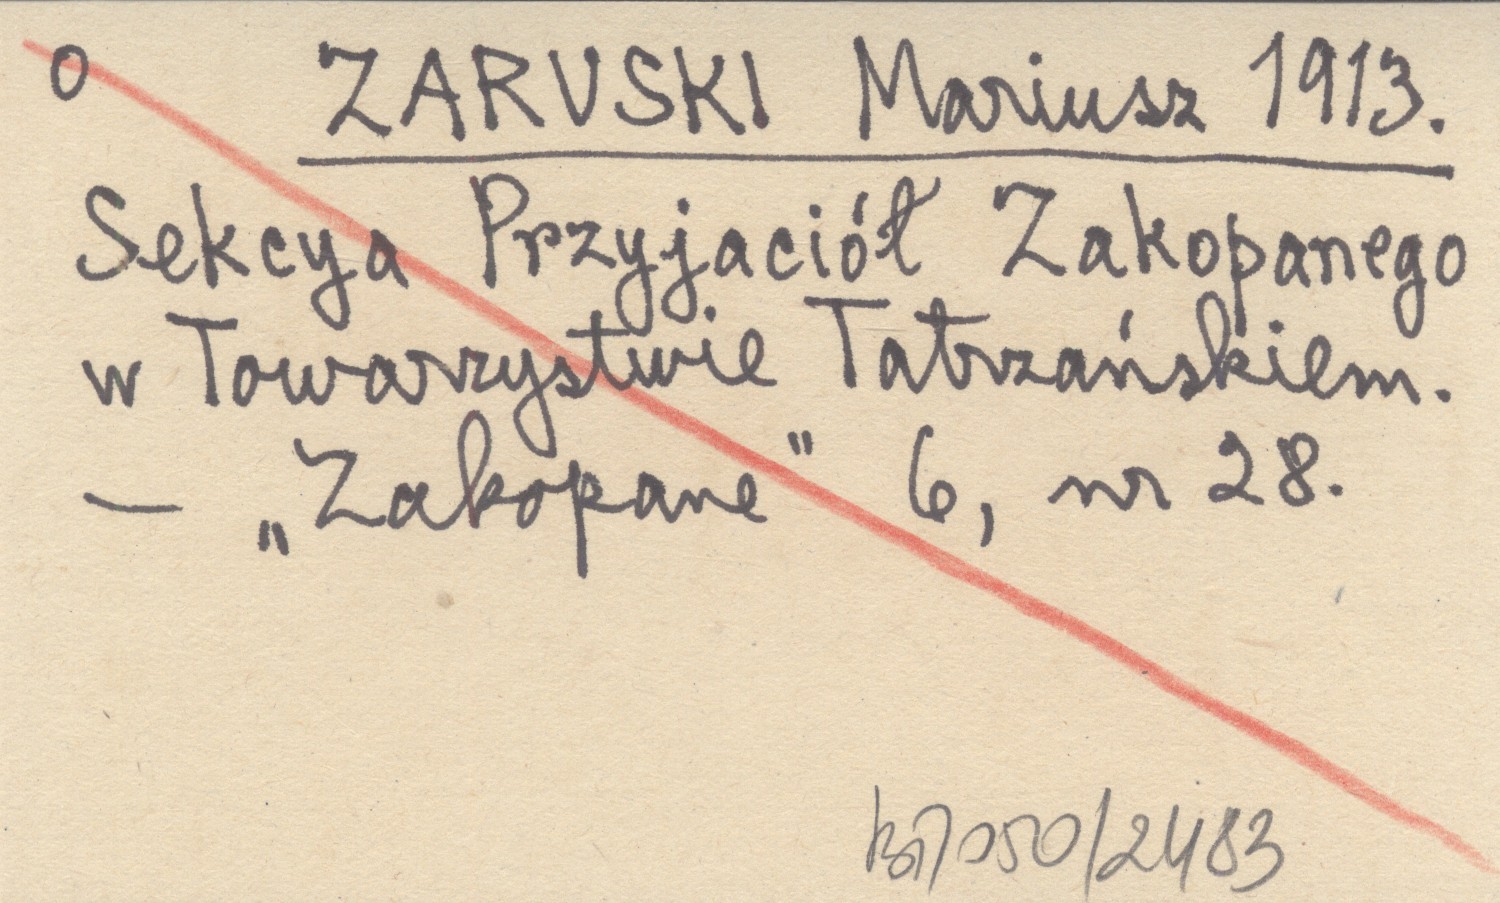 o ZARUSKI Mariusz 1913.
Sekcya Przyjaciół Zakopanego
w Towarzystwie Tatrzańskiem.
— „Zakopane" 6, nr 28.
/2483